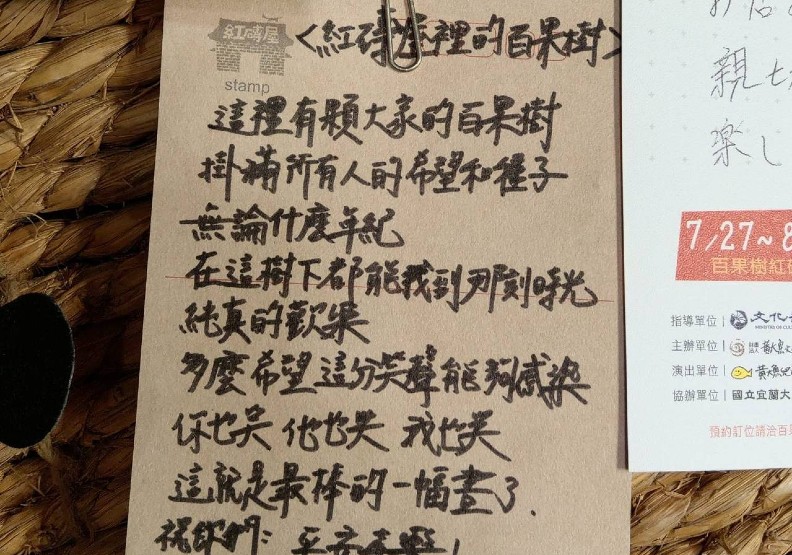 紅磚屋
stamp
<紅磚屋裡的百果樹>
這裡有顆大家的百果樹
掛滿所有人的希望和種子
無論什麼年紀
在這樹下都能找到那刻時光
純真的歡樂
多麼希望這份笑聲能夠感染
你也笑 他也笑 我也笑
這就是最棒的一幅畫了.
祝你們: 平安喜樂!
親
楽し
7/27~8
百果樹紅
指導單位 | 文化
MINISTRY OF CUL
主辦單位 | 財團法人 黃魚文
演出單位 | 黃魚
協辦單位 | 國立宜蘭大
預約訂位請洽百